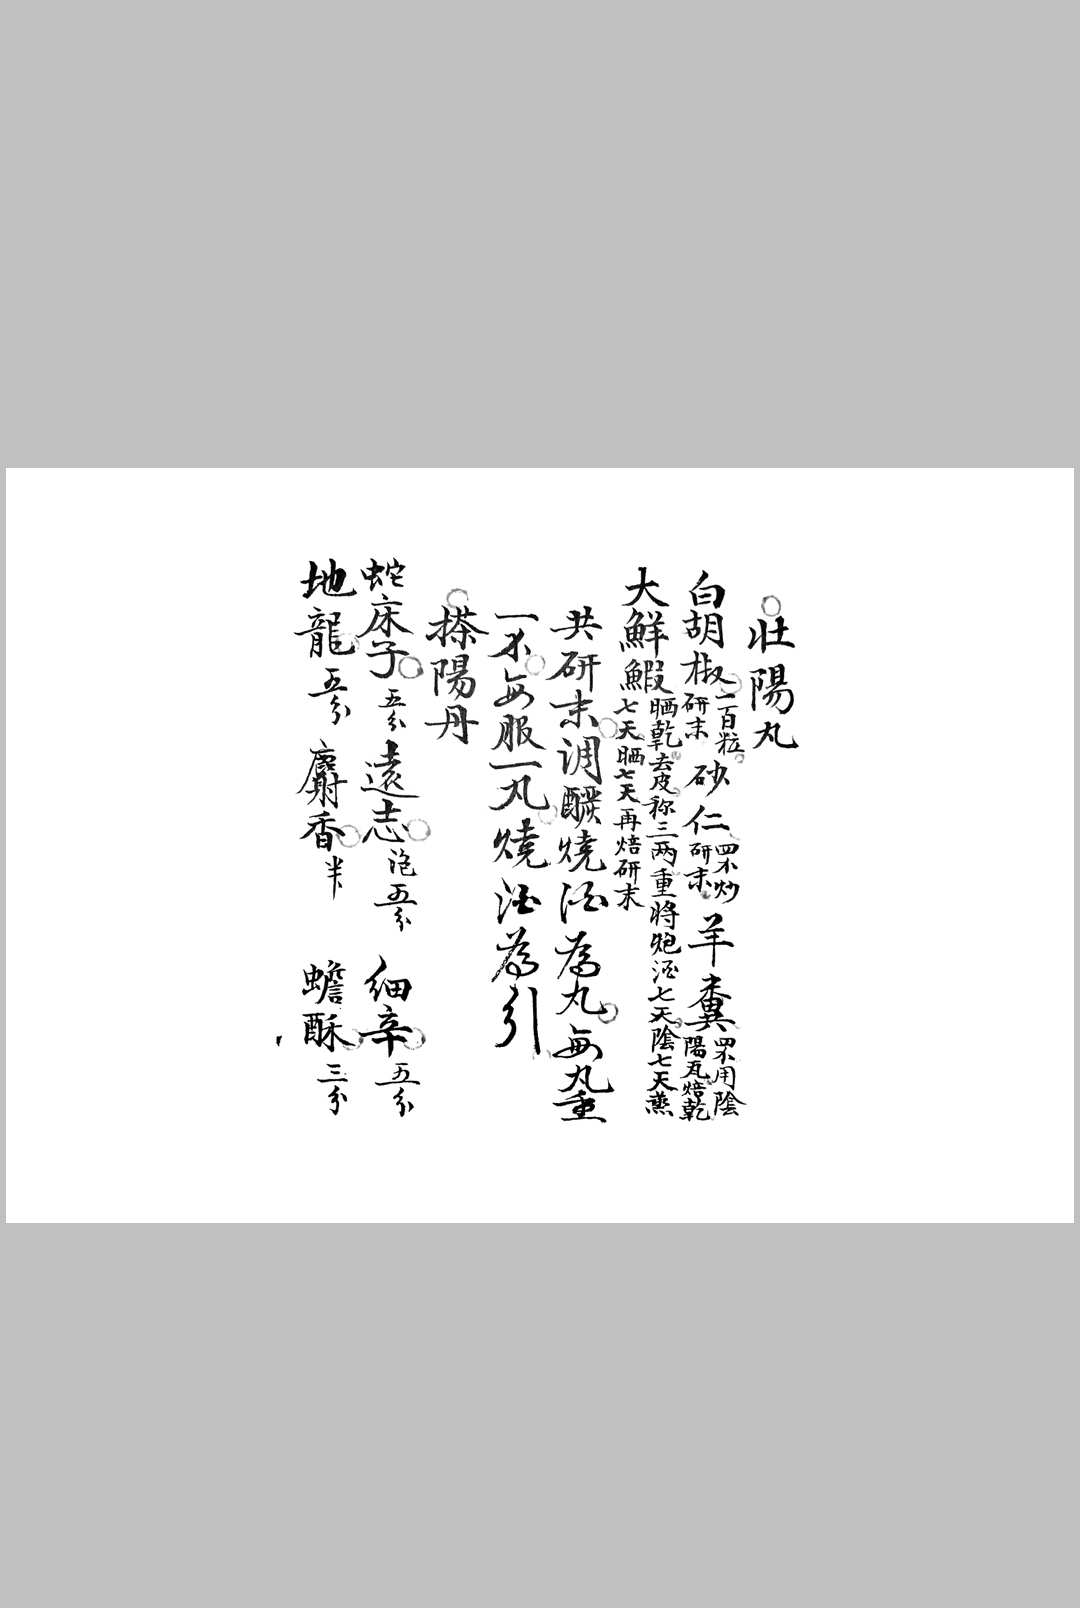 壯陽丸
白胡椒一百粒研末砂仁四不炒研末羊糞四不用陰陽瓦焙乾
大鮮鰕晒乾去皮称三两重將炮酒七天陰七天蒸七天晒七天再焙研末
共研末調釅燒酒為丸每丸重
一不每服一丸燒酒為引
搽陽丹
蛇床子五分遠志泡五分細辛五分
地龍五分麝香半蟾酥三分